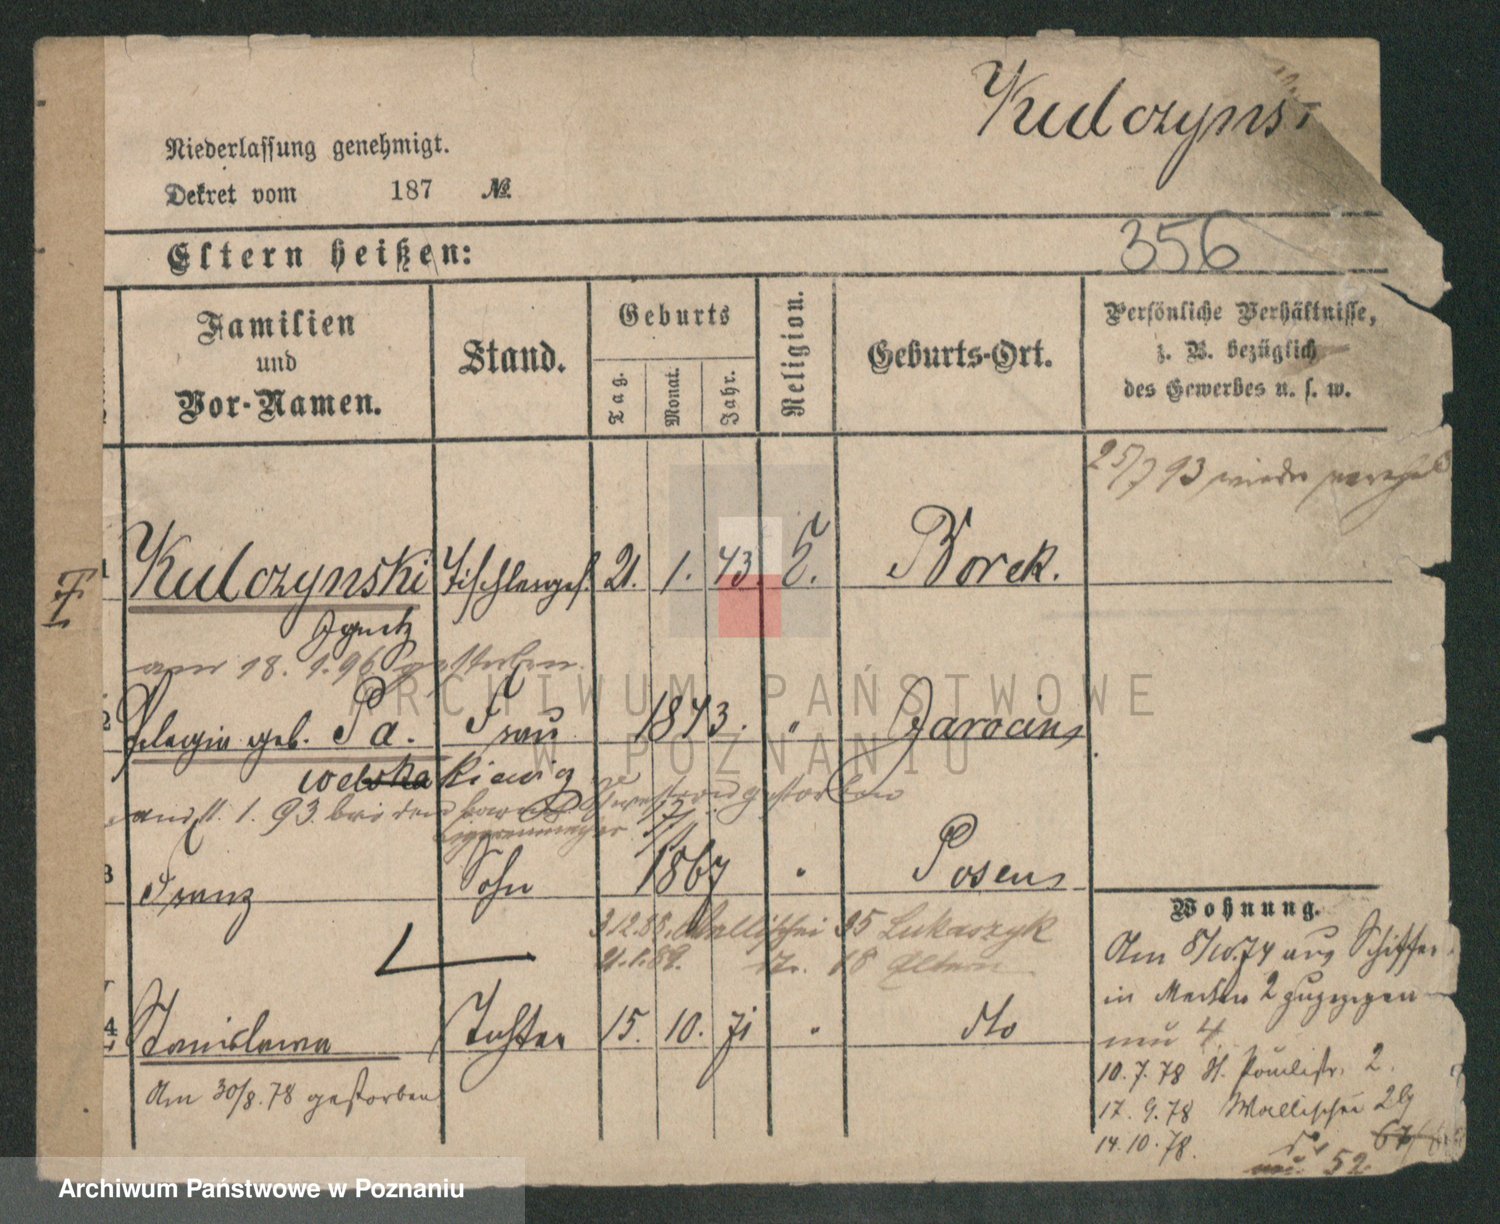 Kulczynsk
Niederlassung genehmigt.
Dekret vom 187 №
Eltern heißen:
356
Familien und Vor-Namen.
Stand.
Geburts
Tag. Monat. Jahr.
Religion.
Geburts-Ort.
Persönliche Verhältnisse,
z. B. bezüglich
des Gewerbes u. s. w.
25/7 93 wieder
1 Kulczynski Tischlerges. 21. 1. 43. Borek.
Ignatz
am 18. 1. 96 gestorben.
2 Pelagia geb. Pa. Frau 1843. " Jarocin
welska kiewicz
1. 93. bei dem gestorben
3 Franz Sohn 1867 " Posen
3.12.88. Wallischei 35 Lukaszyk
21.1.89. 18 Eltern
4 Stanislawa Tochter 15. 10. 71 " dto
Am 30/8.78 gestorben
Wohnung.
Am 5/10.74 aus Schiffer
in 2 zugezogen
nu 4
10.7.78 St. Paulistr. 2.
17.9.78 Wallischei
14.10.78. 67/
52
ARCHIWUM PAŃSTWOWE
W POZNANIU
Archiwum Państwowe w Poznaniu